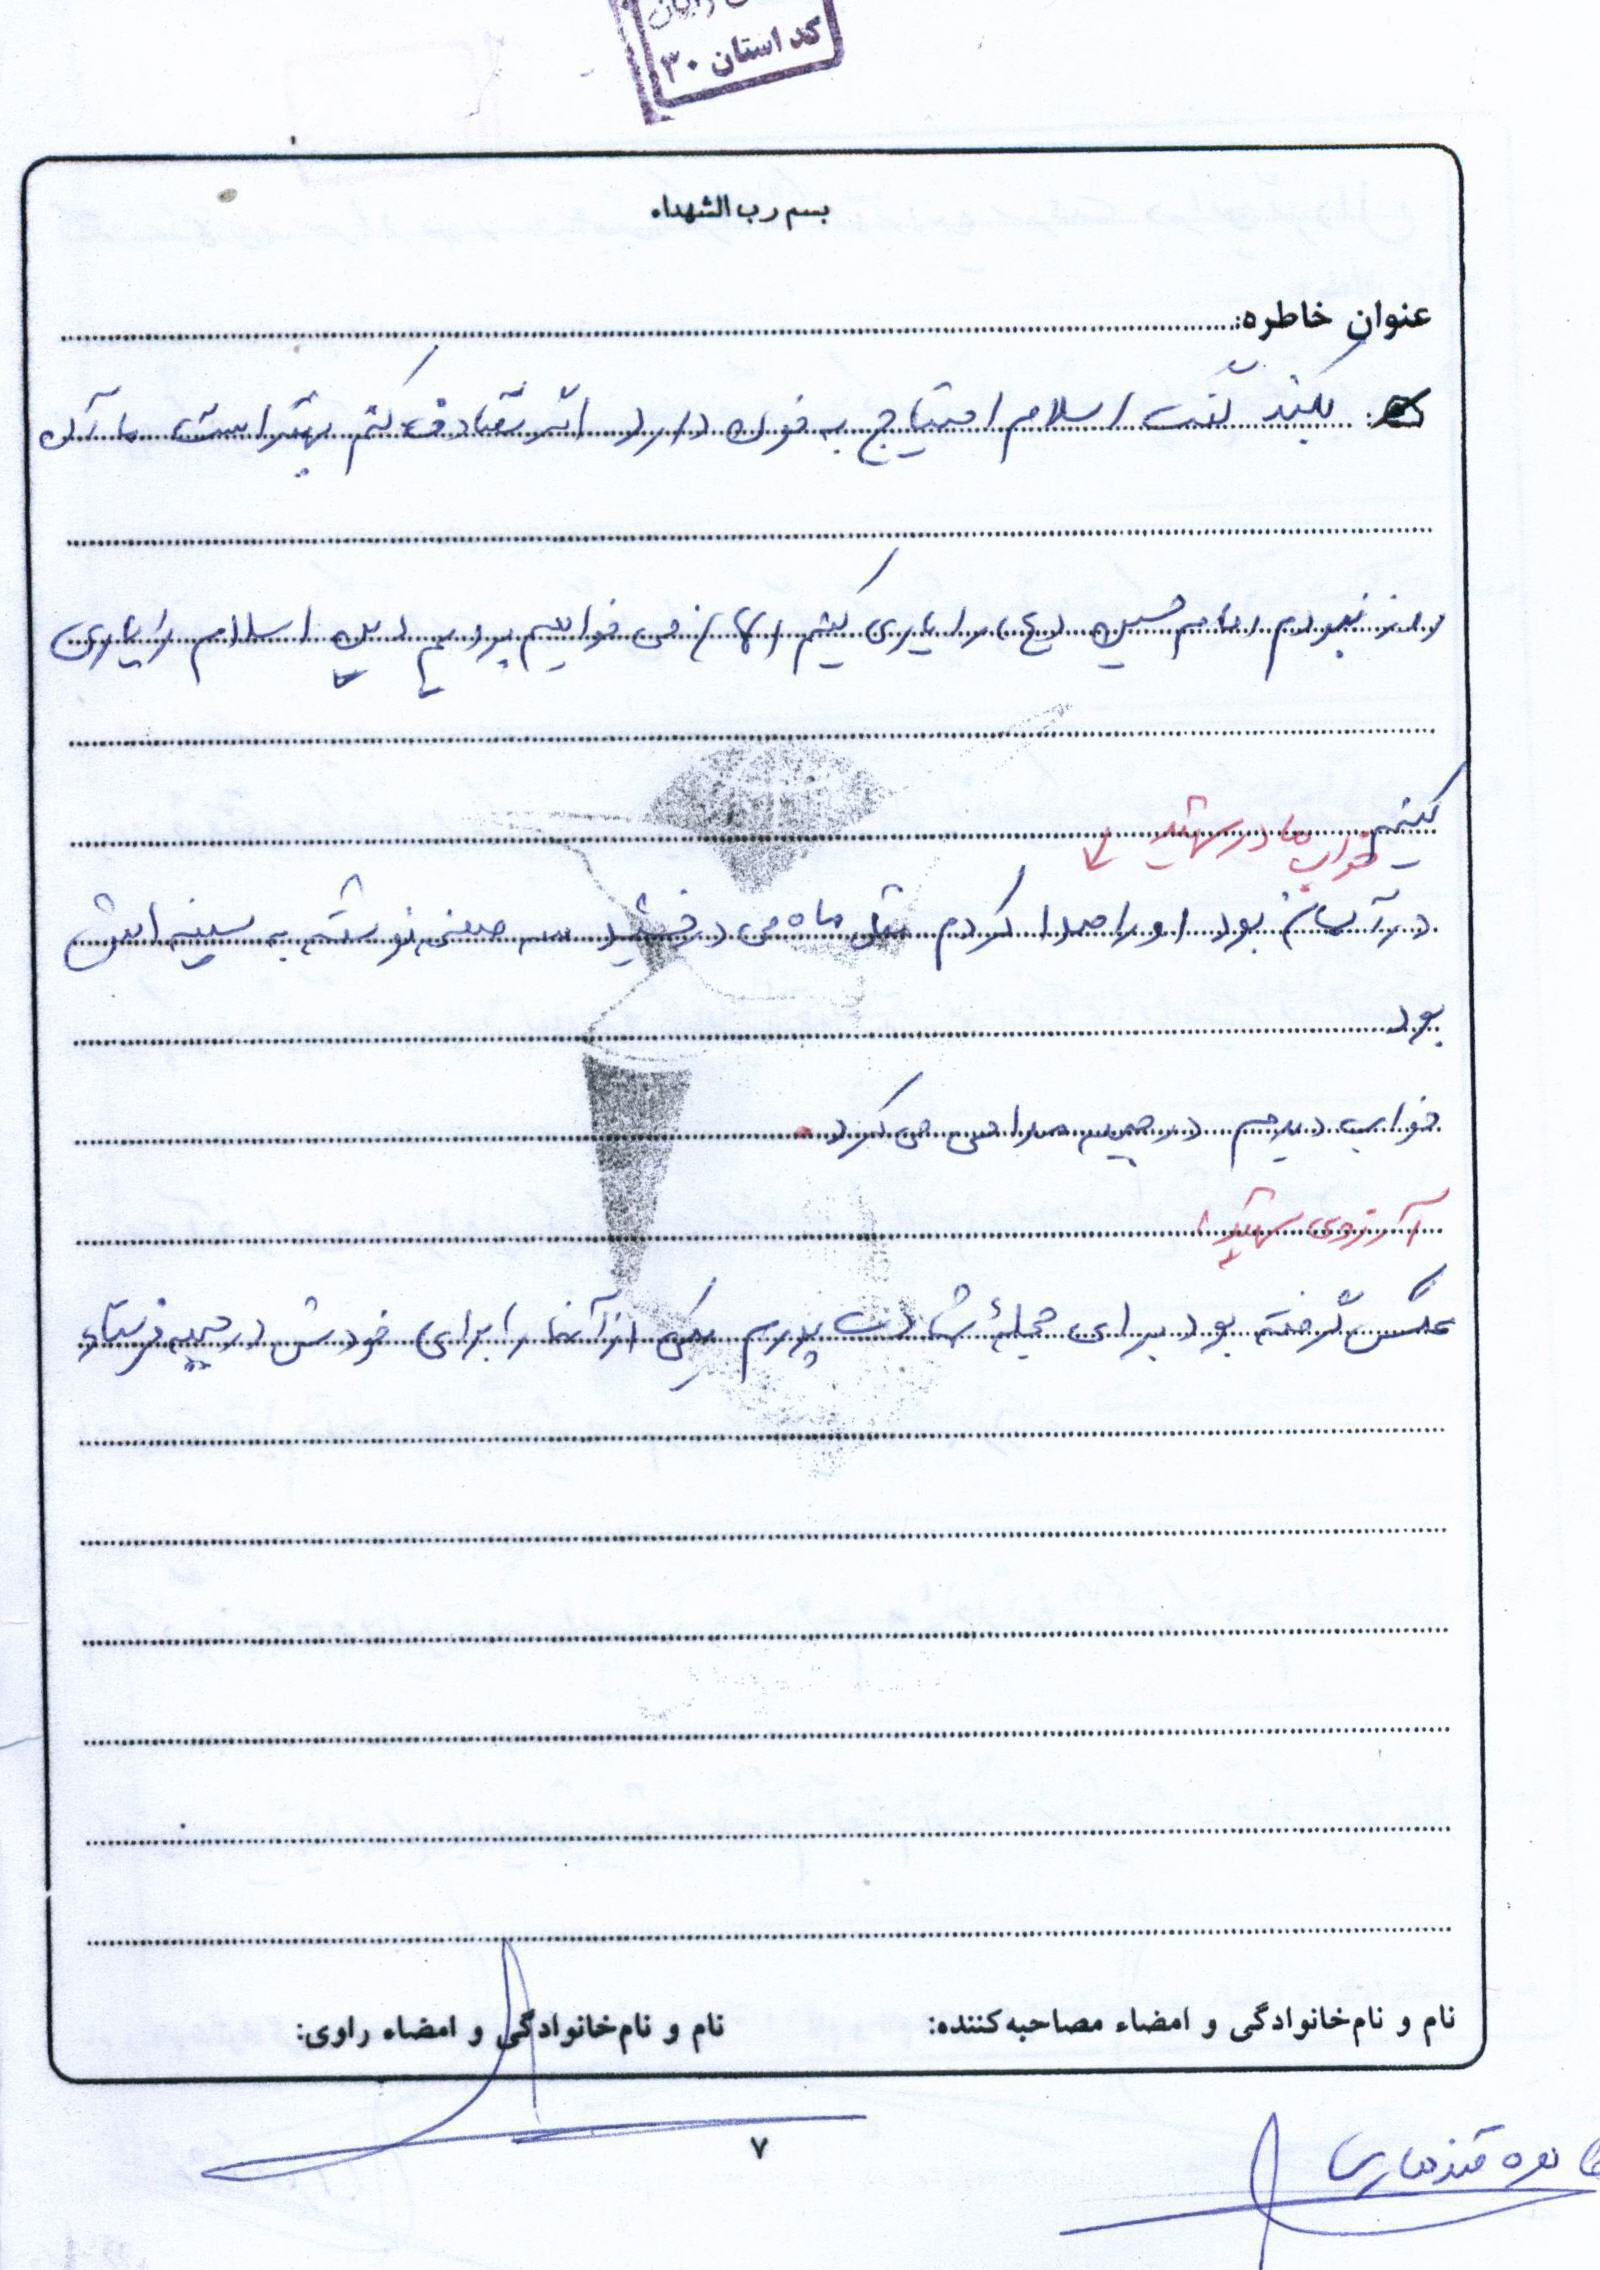 کد استان ۳۰
بسم رب الشهداء
عنوان خاطره:
بکند گفت اسلام احتیاج به خون دارد اثر تصادف کنم بهتر است ما آن
روز نبودیم امام حسین (ع) را یاری کنیم الان می خواهیم برویم دین اسلام را یاری
کنیم
خواب مادر شهید
در آسمان بود او را صدا کردم مثل ماه می درخشید سه صفحه نوشته به سینه اش
بود
خواب دیدم در جبهه صدا می کرد
آرزوی شهید
عکس گرفته بود برای حجله شهادت پدرم یکی از آنها را برای خودش در جبهه فرستاد
نام و نام‌خانوادگی و امضاء مصاحبه‌کننده:
نام و نام‌خانوادگی و امضاء راوی:
۷
قندهاری